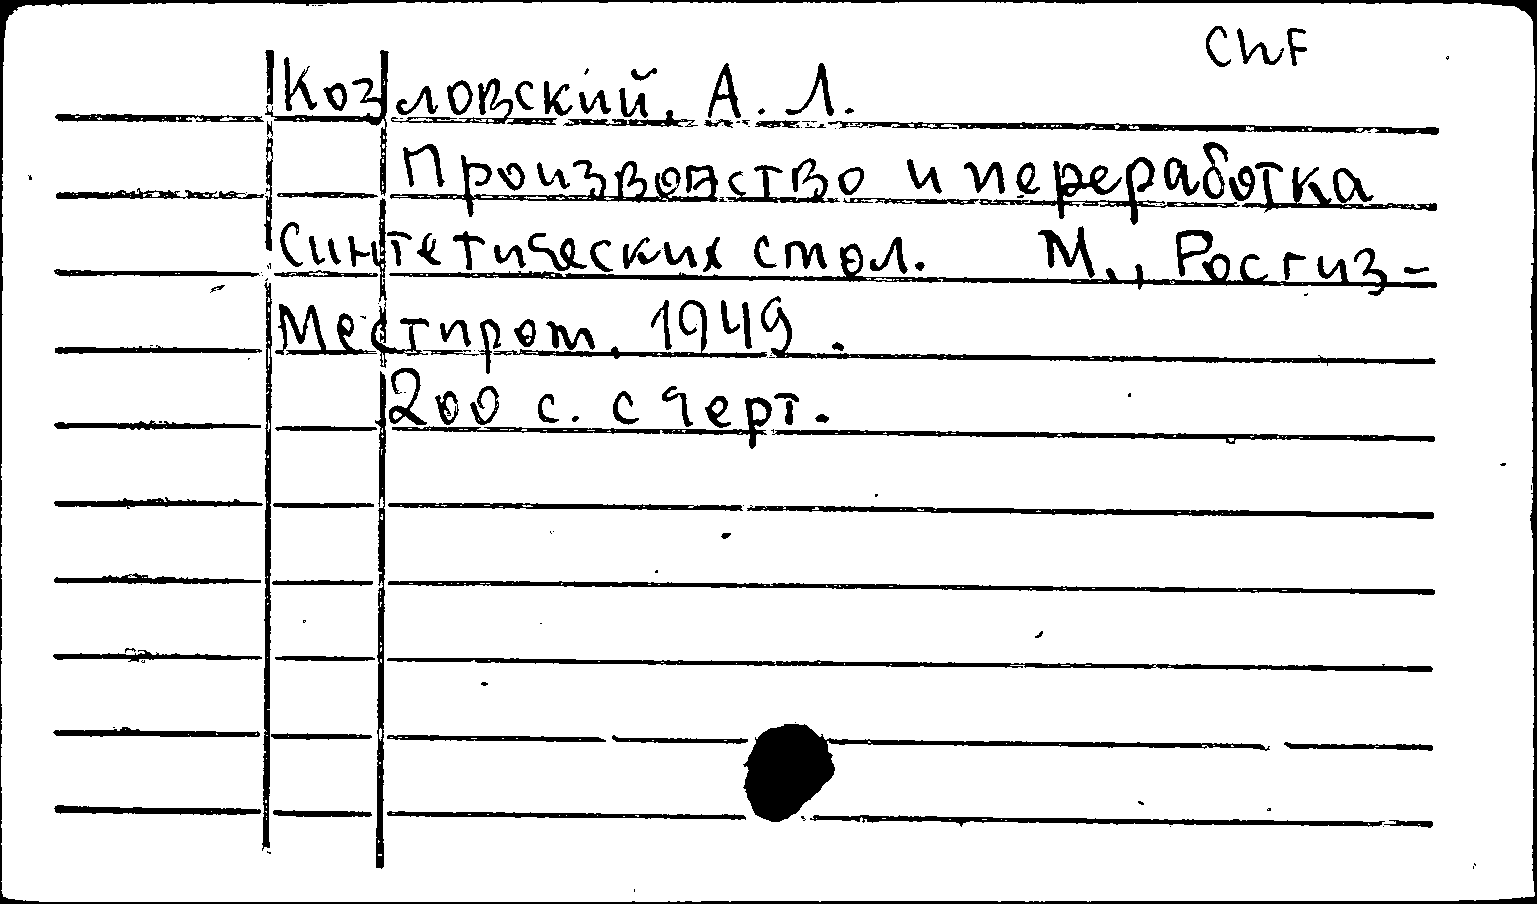 ChF
Козловский, А. Л.
Производство и переработка
синтетических смол. М., Росгиз-
Местпром, 1949.
200 с. с черт.